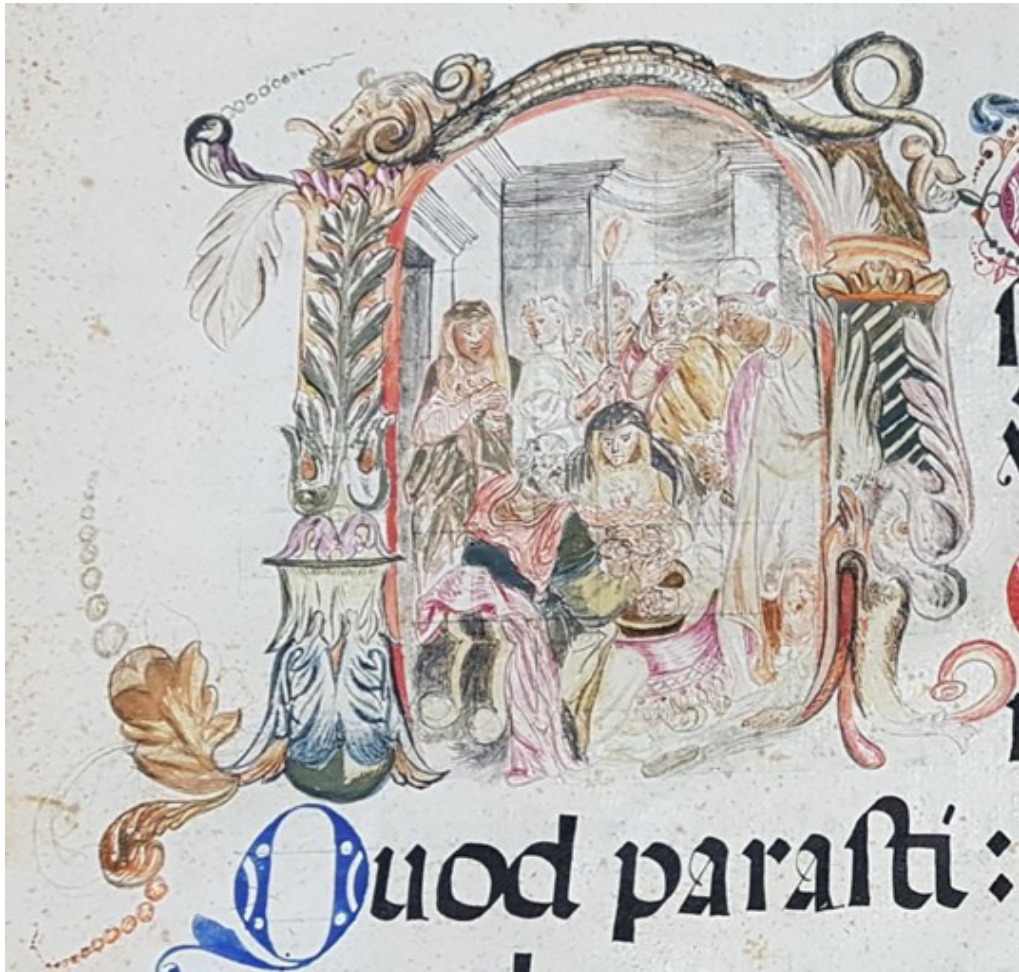 N
Quod paraſti: